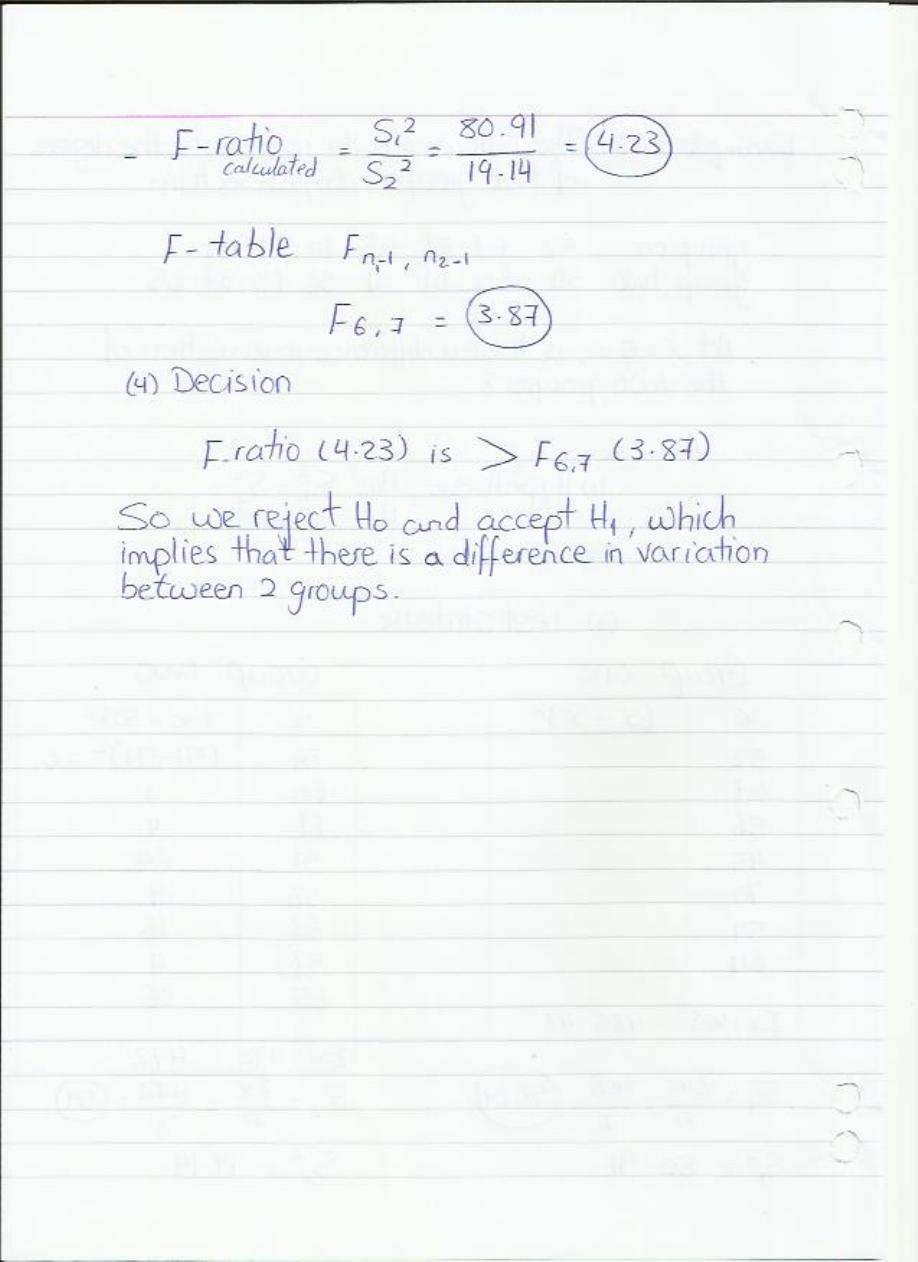 - F-ratio calculated = S₁²/S₂² = 80.91/19.14 = 4.23
F-table F n₁-1, n₂-1
F6,7 = 3.87
(4) Decision
F.ratio (4.23) is > F6,7 (3.87)
So we reject H₀ and accept H₁, which
implies that there is a difference in variation
between 2 groups.